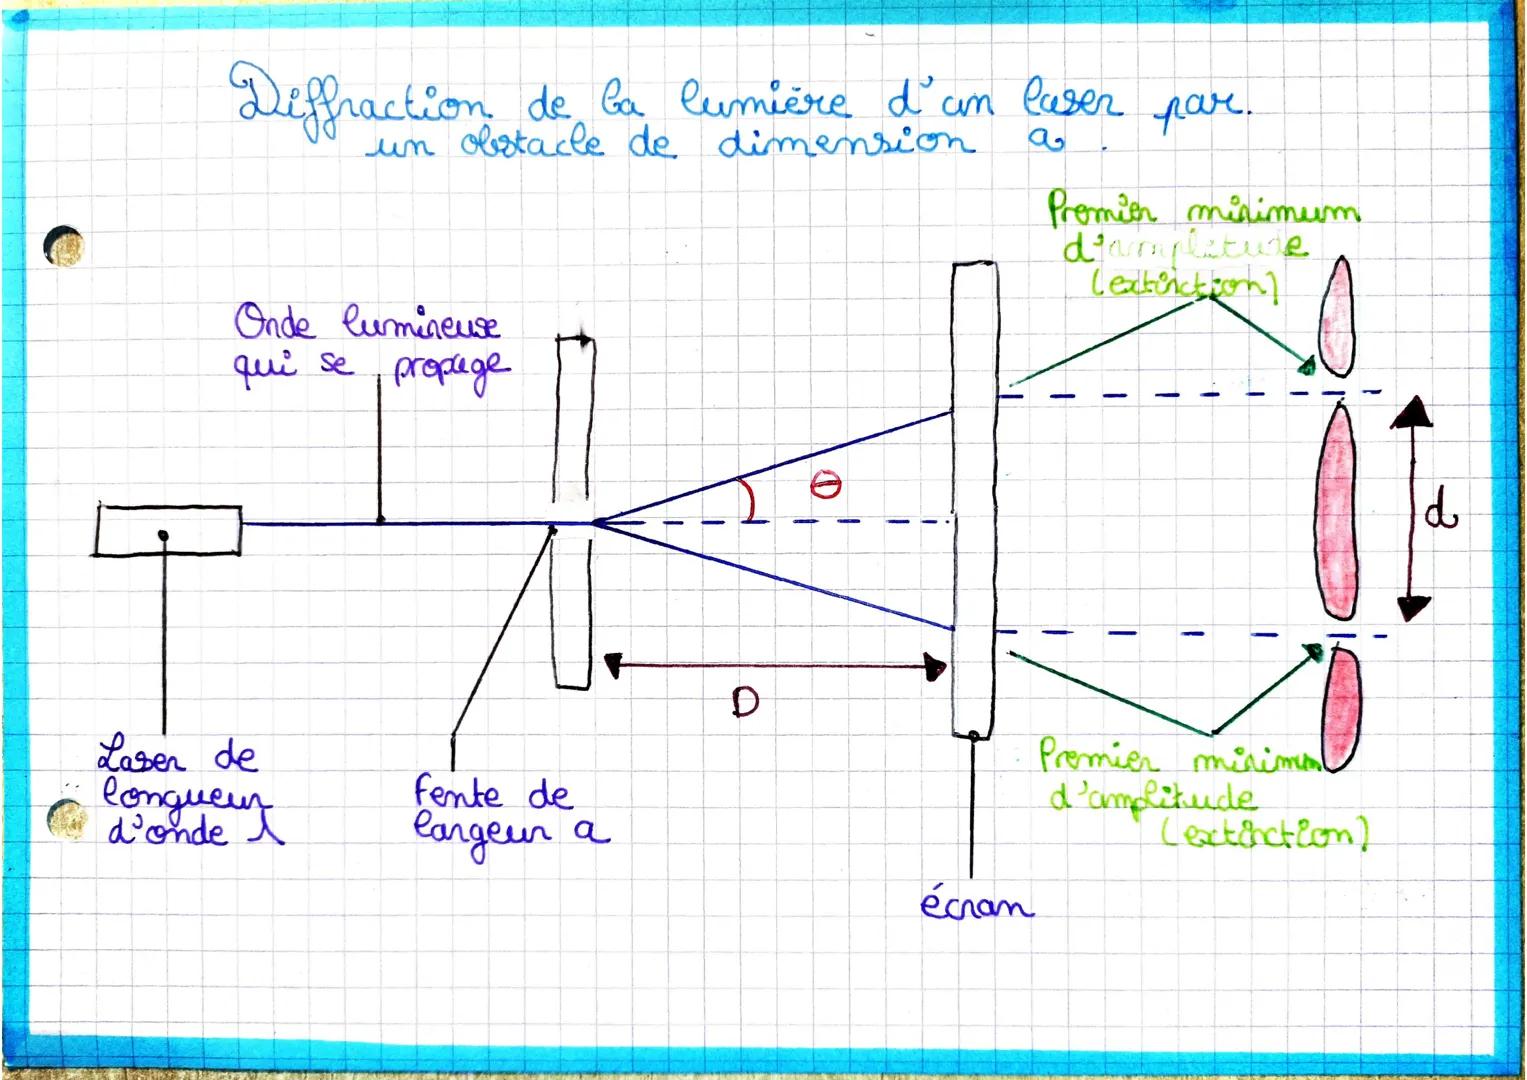 Diffraction de la lumière d'un laser par.
un obstacle de dimension a.
Premier minimum
d'amplitude
(extinction)
Onde lumineuse
qui se propage
θ
d
D
Laser de
longueur
d'onde λ
fente de
largeur a
Premier minimum
d'amplitude
(extinction)
écran